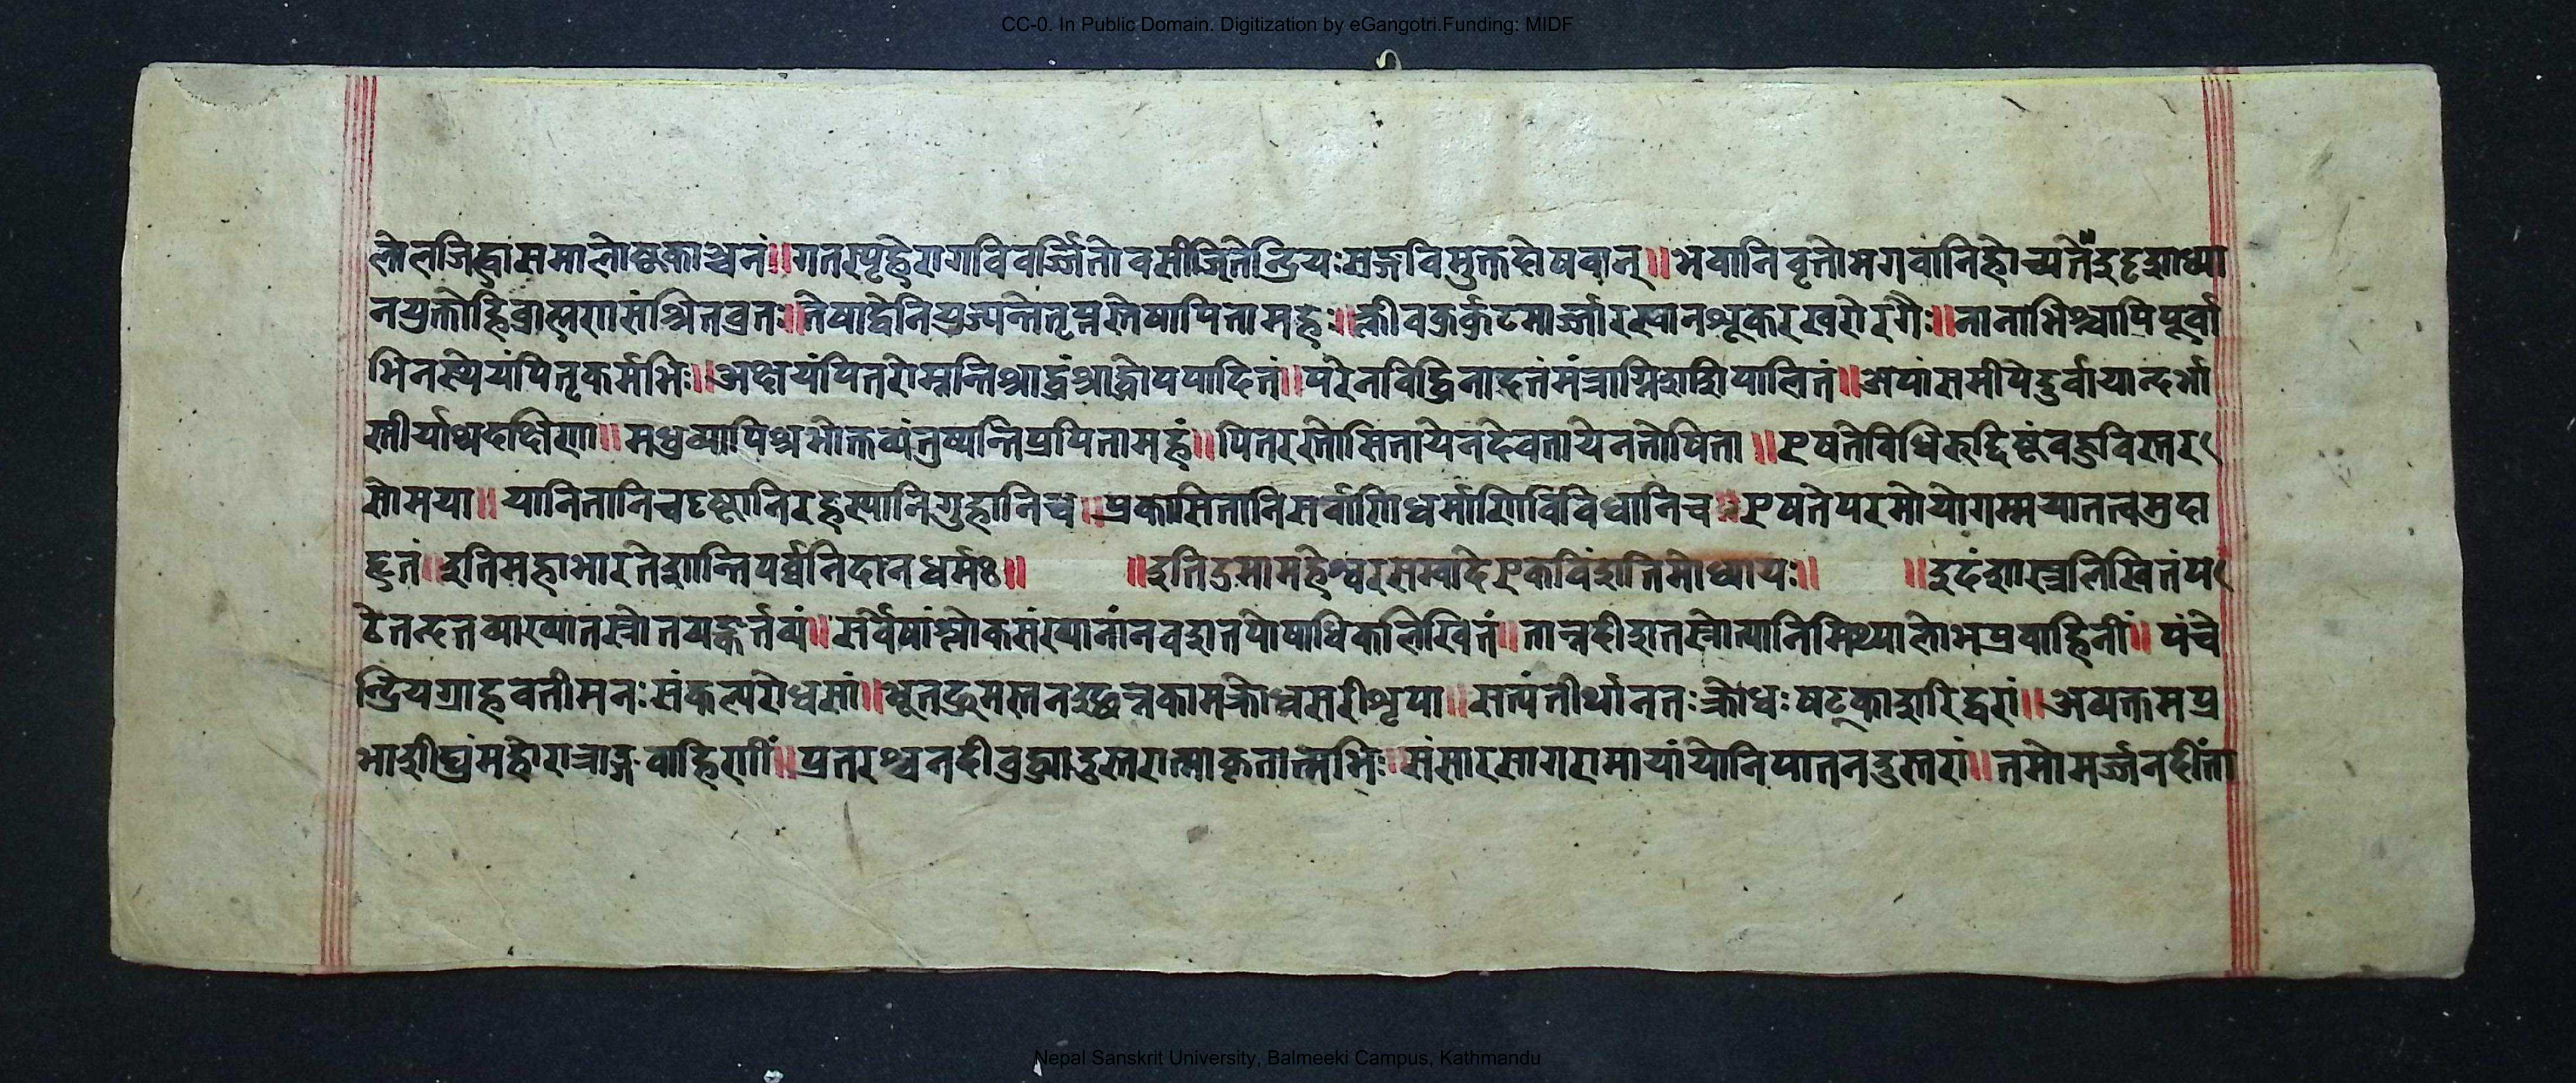 CC-0. In Public Domain. Digitization by eGangotri.Funding: MIDF
लोलजिह्वासमालोष्टकाञ्चनं॥गतस्पृहेरागविवर्ज्जितोवसीजितेन्द्रियःसङ्गविमुक्तदोषवान्॥भवानिवृत्तोभगवानिहोच्यते
नयुक्तोहिब्राह्मणासंश्रितव्रतः॥तेषाद्वेनियुज्यन्तेतृप्नस्तेषापितामहः॥क्लीवकुर्कुटमार्ज्जारस्वानश्रूकरखरोरगैः॥नानाभिश्चापिपूर्वा
भिनस्येयंपितृकर्मभिः॥अक्षयंपितरोम्नन्तिश्राद्धंश्राद्धोपपादितं॥परेनविद्धिनाहतंमंत्राग्निशशिपालितं॥अपांसमीपेदुर्वायान्दर्भा
स्तीर्याथदक्षिणा॥मधुव्यापिश्रभोक्तव्यंतुष्यन्तिप्रपितामहं॥पितरस्तोसितायेनदेवतायेनतोषिता॥एषतेविधिरुद्दिष्टंबहुविस्तर
सोमया॥यानितानिचदृष्टानिरहस्यानिगुह्यानिच॥प्रकासितानिसर्वाणिधर्माणिविविधानिच॥एषतेपरमोयोगम्मयातत्वमुदा
हृतं॥इतिमहाभारतेशान्तिपर्व्वनिदानधर्मः॥ ॥इतिउमामहेश्वरसम्वादेएकविंशतिमोध्यायः॥ ॥इदंशास्त्रलिखितंप
टेतन्दत्तव्याख्यातस्त्रोतयङ्कर्त्तव्यं॥सर्वेषांश्लोकसंख्यानांनवशतपोषाधिकलिखितं॥तान्नदीशतस्रोत्यानिमिथ्यालोभप्रवाहिनीं॥पंचे
न्द्रियग्राहवतीमनःसंकल्परोधसां॥भूतद्रुमस्तनइछन्नकामक्रोधसरीशृपा॥सत्यंतीर्थानतःक्रोधःषट्काशरिद्वरां॥अव्यक्तमप्र
भाशीघ्रंमहोरात्राङ्गवाहिणीं॥प्रतरश्वनदीबुद्ध्यादुस्तरात्माकृतात्मभिः॥संसारसागरामायांयोनिपातनदुस्तरां॥तमोमर्ज्जनदींता
Nepal Sanskrit University, Balmeeki Campus, Kathmandu